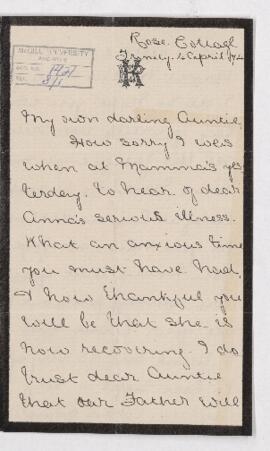 Rose Cottage
McGILL UNIVERSITY
ARCHIVES
ACC. NO.
REF.
My own darling Auntie,
How sorry I was
when at Mamma's yes
terday, to hear of dear
Anna's serious illness.
What an anxious time
you must have had,
& how thankful you
will be that she is
now recovering. I do
trust dear Auntie
that our Father will